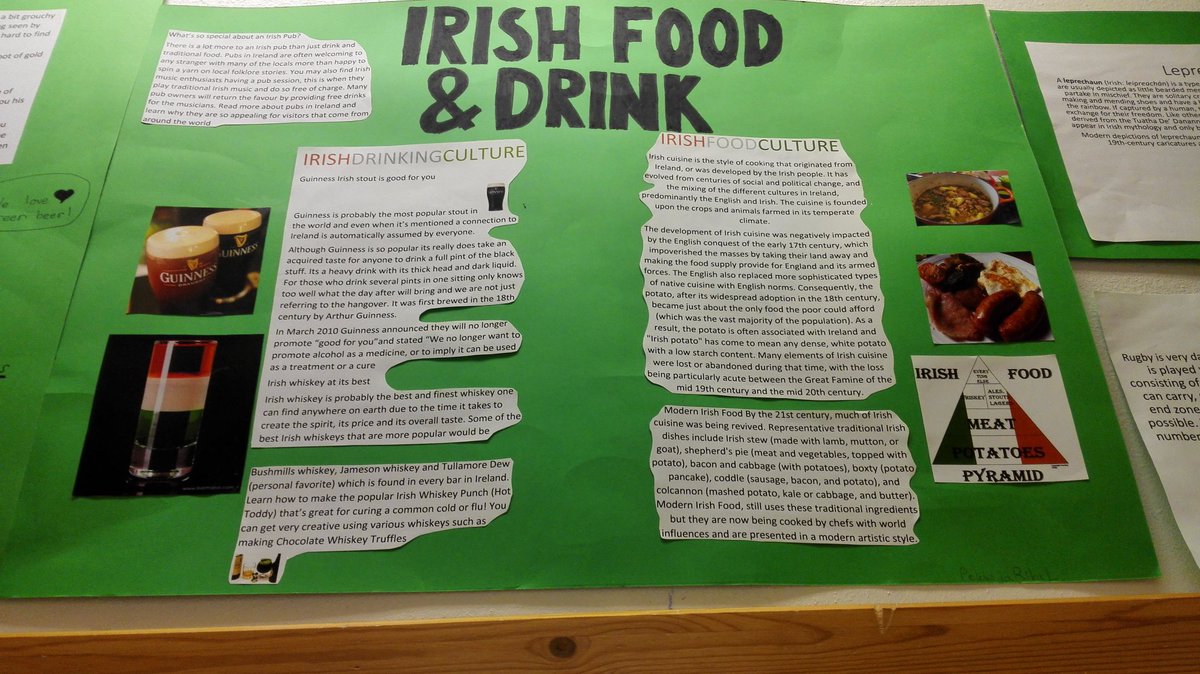 a bit grouchy
ng seen by
hard to find
pot of gold
e of
u his
e love
reer beer!
IRISH FOOD
& DRINK
What's so special about an Irish Pub?
There is a lot more to an Irish pub than just drink and
traditional food. Pubs in Ireland are often welcoming to
any stranger with many of the locals more than happy to
spin a yarn on local folklore stories. You may also find Irish
music enthusiasts having a pub session, this is when they
play traditional Irish music and do so free of charge. Many
pub owners will return the favour by providing free drinks
for the musicians. Read more about pubs in Ireland and
learn why they are so appealing for visitors that come from
around the world
IRISHDRINKINGCULTURE
Guinness Irish stout is good for you
Guinness is probably the most popular stout in
the world and even when it's mentioned a connection to
Ireland is automatically assumed by everyone.
Although Guinness is so popular its really does take an
acquired taste for anyone to drink a full pint of the black
stuff. Its a heavy drink with its thick head and dark liquid.
For those who drink several pints in one sitting only knows
too well what the day after will bring and we are not just
referring to the hangover. It was first brewed in the 18th
century by Arthur Guinness.
In March 2010 Guinness announced they will no longer
promote "good for you"and stated "We no longer want to
promote alcohol as a medicine, or to imply it can be used
as a treatment or a cure
Irish whiskey at its best
Irish whiskey is probably the best and finest whiskey one
can find anywhere on earth due to the time it takes to
create the spirit, its price and its overall taste. Some of the
best Irish whiskeys that are more popular would be
Bushmills whiskey, Jameson whiskey and Tullamore Dew
(personal favorite) which is found in every bar in Ireland.
Learn how to make the popular Irish Whiskey Punch (Hot
Toddy) that's great for curing a common cold or flu! You
can get very creative using various whiskeys such as
making Chocolate Whiskey Truffles
GUINNESS
GUINNESS
IRISHFOODCULTURE
Irish cuisine is the style of cooking that originated from
Ireland, or was developed by the Irish people. It has
evolved from centuries of social and political change, and
the mixing of the different cultures in Ireland,
predominantly the English and Irish. The cuisine is founded
upon the crops and animals farmed in its temperate
climate.
The development of Irish cuisine was negatively impacted
by the English conquest of the early 17th century, which
impoverished the masses by taking their land away and
making the food supply provide for England and its armed
forces. The English also replaced more sophisticated types
of native cuisine with English norms. Consequently, the
potato, after its widespread adoption in the 18th century,
became just about the only food the poor could afford
(which was the vast majority of the population). As a
result, the potato is often associated with Ireland and
"Irish potato" has come to mean any dense, white potato
with a low starch content. Many elements of Irish cuisine
were lost or abandoned during that time, with the loss
being particularly acute between the Great Famine of the
mid 19th century and the mid 20th century.
Modern Irish Food By the 21st century, much of Irish
cuisine was being revived. Representative traditional Irish
dishes include Irish stew (made with lamb, mutton, or
goat), shepherd's pie (meat and vegetables, topped with
potato), bacon and cabbage (with potatoes), boxty (potato
pancake), coddle (sausage, bacon, and potato), and
colcannon (mashed potato, kale or cabbage, and butter).
Modern Irish Food, still uses these traditional ingredients
but they are now being cooked by chefs with world
influences and are presented in a modern artistic style.
IRISH FOOD
EVERY
THING
ELSE
WHISKEY
ALES,
STOUT,
LAGERS
MEAT
POTATOES
PYRAMID
Lepre
A leprechaun (Irish: leipreachán) is a type
are usually depicted as little bearded me
partake in mischief. They are solitary cr
making and mending shoes and have a
the rainbow. If captured by a human,
exchange for their freedom. Like othe
derived from the Tuatha De' Danann
appear in Irish mythology and only
Modern depictions of leprechaun
19th-century caricatures a
Rugby is very da
is played
consisting of
can carry,
end zone
possible.
number.